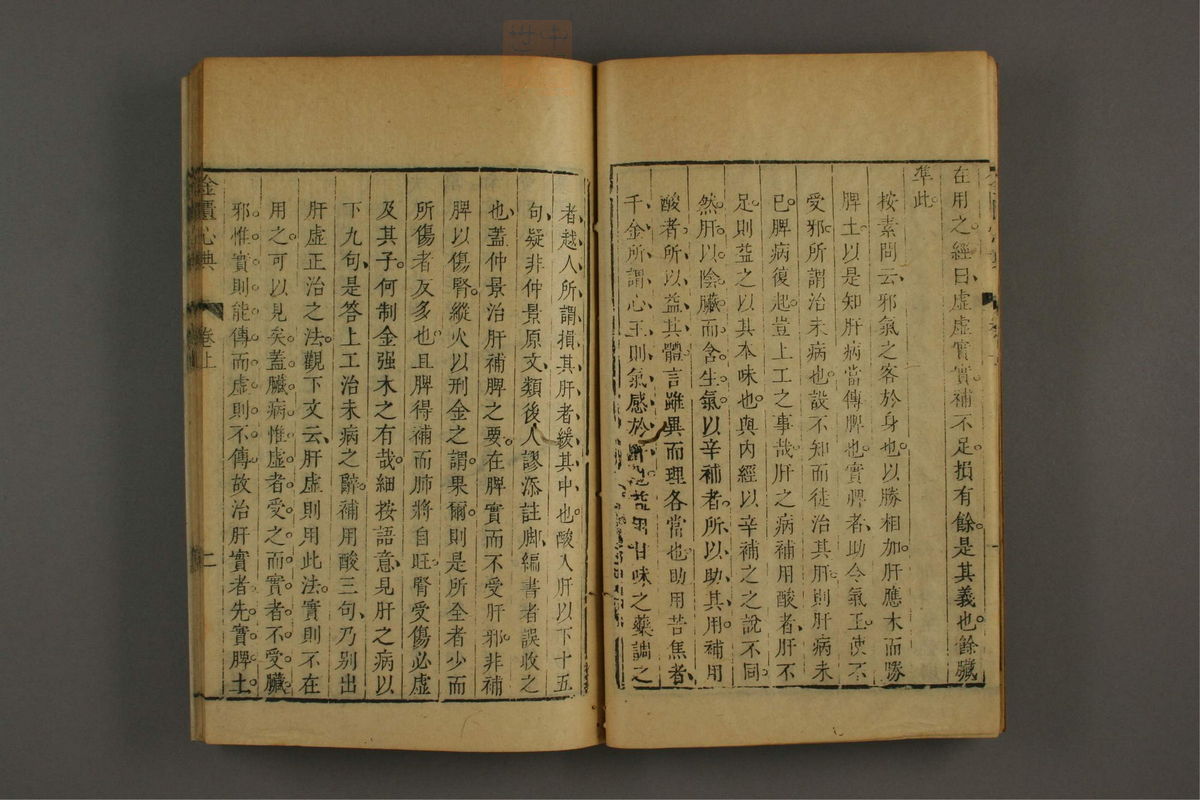 在用之。經曰虛虛實實。補不足。損有餘。是其義也。餘臟
準此。
按素問云。邪氣之客於身也。以勝相加。肝應木而勝
脾土。以是知肝病當傳脾也。實脾者、助令氣王。使不
受邪。所謂治未病也。設不知而徒治其肝。則肝病未
已。脾病復起。豈上工之事哉。肝之病補用酸者、肝不
足。則益之以其本味也。與內經以辛補之之說不同。
然肝以陰臟而舍生氣。以辛補者。所以助其用。補用
酸者。所以益其體。言雖異而理各當也。助用苦焦者、
千金所謂心王則氣感於肝也。益用甘味之藥調之
者、越人所謂損其肝者緩其中也。酸入肝以下十五
句、疑非仲景原文、類後人謬添註脚、編書者誤收之
也、蓋仲景治肝補脾之要。在脾實而不受肝邪。非補
脾以傷腎。縱火以刑金之謂。果爾。則是所全者少而
所傷者反多也。且脾得補而肺將自旺。腎受傷必虛
及其子。何制金强木之有哉。細按語意、見肝之病以
下九句、是答上工治未病之辭。補用酸三句、乃别出
肝虛正治之法。觀下文云、肝虛則用此法。實則不在
用之。可以見矣。蓋臟病惟虛者受之。而實者不受。臟
邪惟實則能傳。而虛則不傳。故治肝實者。先實脾土。
金匱心典
卷上
二